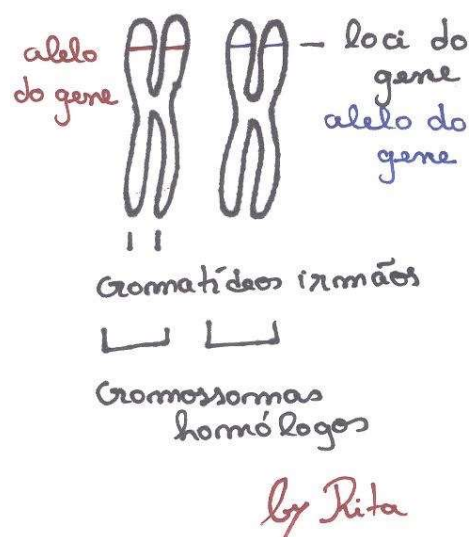 alelo
do gene
— loci do
gene
alelo do
gene
Cromatídeos irmãos
Cromossomas
homólogos
by Rita